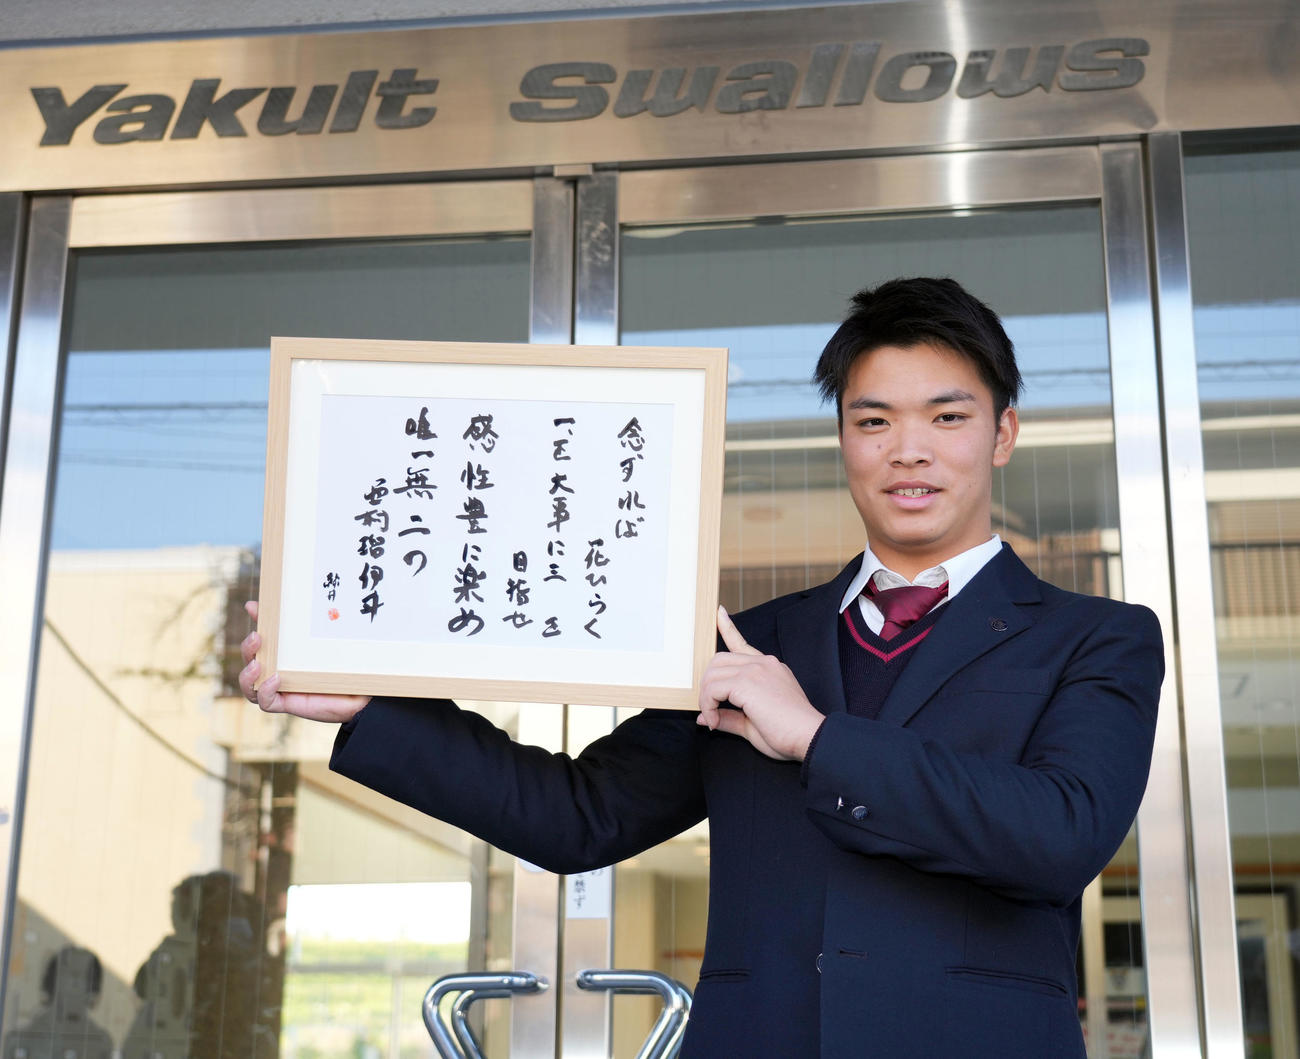 Yakult Swallows
念ずれば
花ひらく
一、を大事に三
目指せ
感性豊に楽め
唯一無二の
西村瑠伊斗
を禁ず